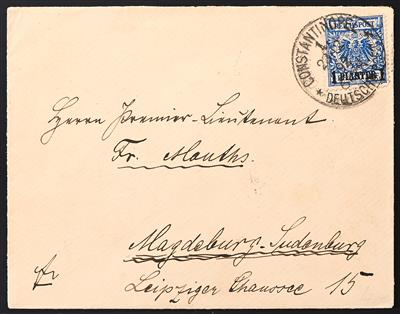 CONSTANTINOPEL 1
REICHSPOST
1 PIASTER 1
* DEUTSCHE
Herrn Premier-Lieutenant
Fr. Mouths.
Magdeburg-Sudenburg
fr
Leipziger Chaussee 15